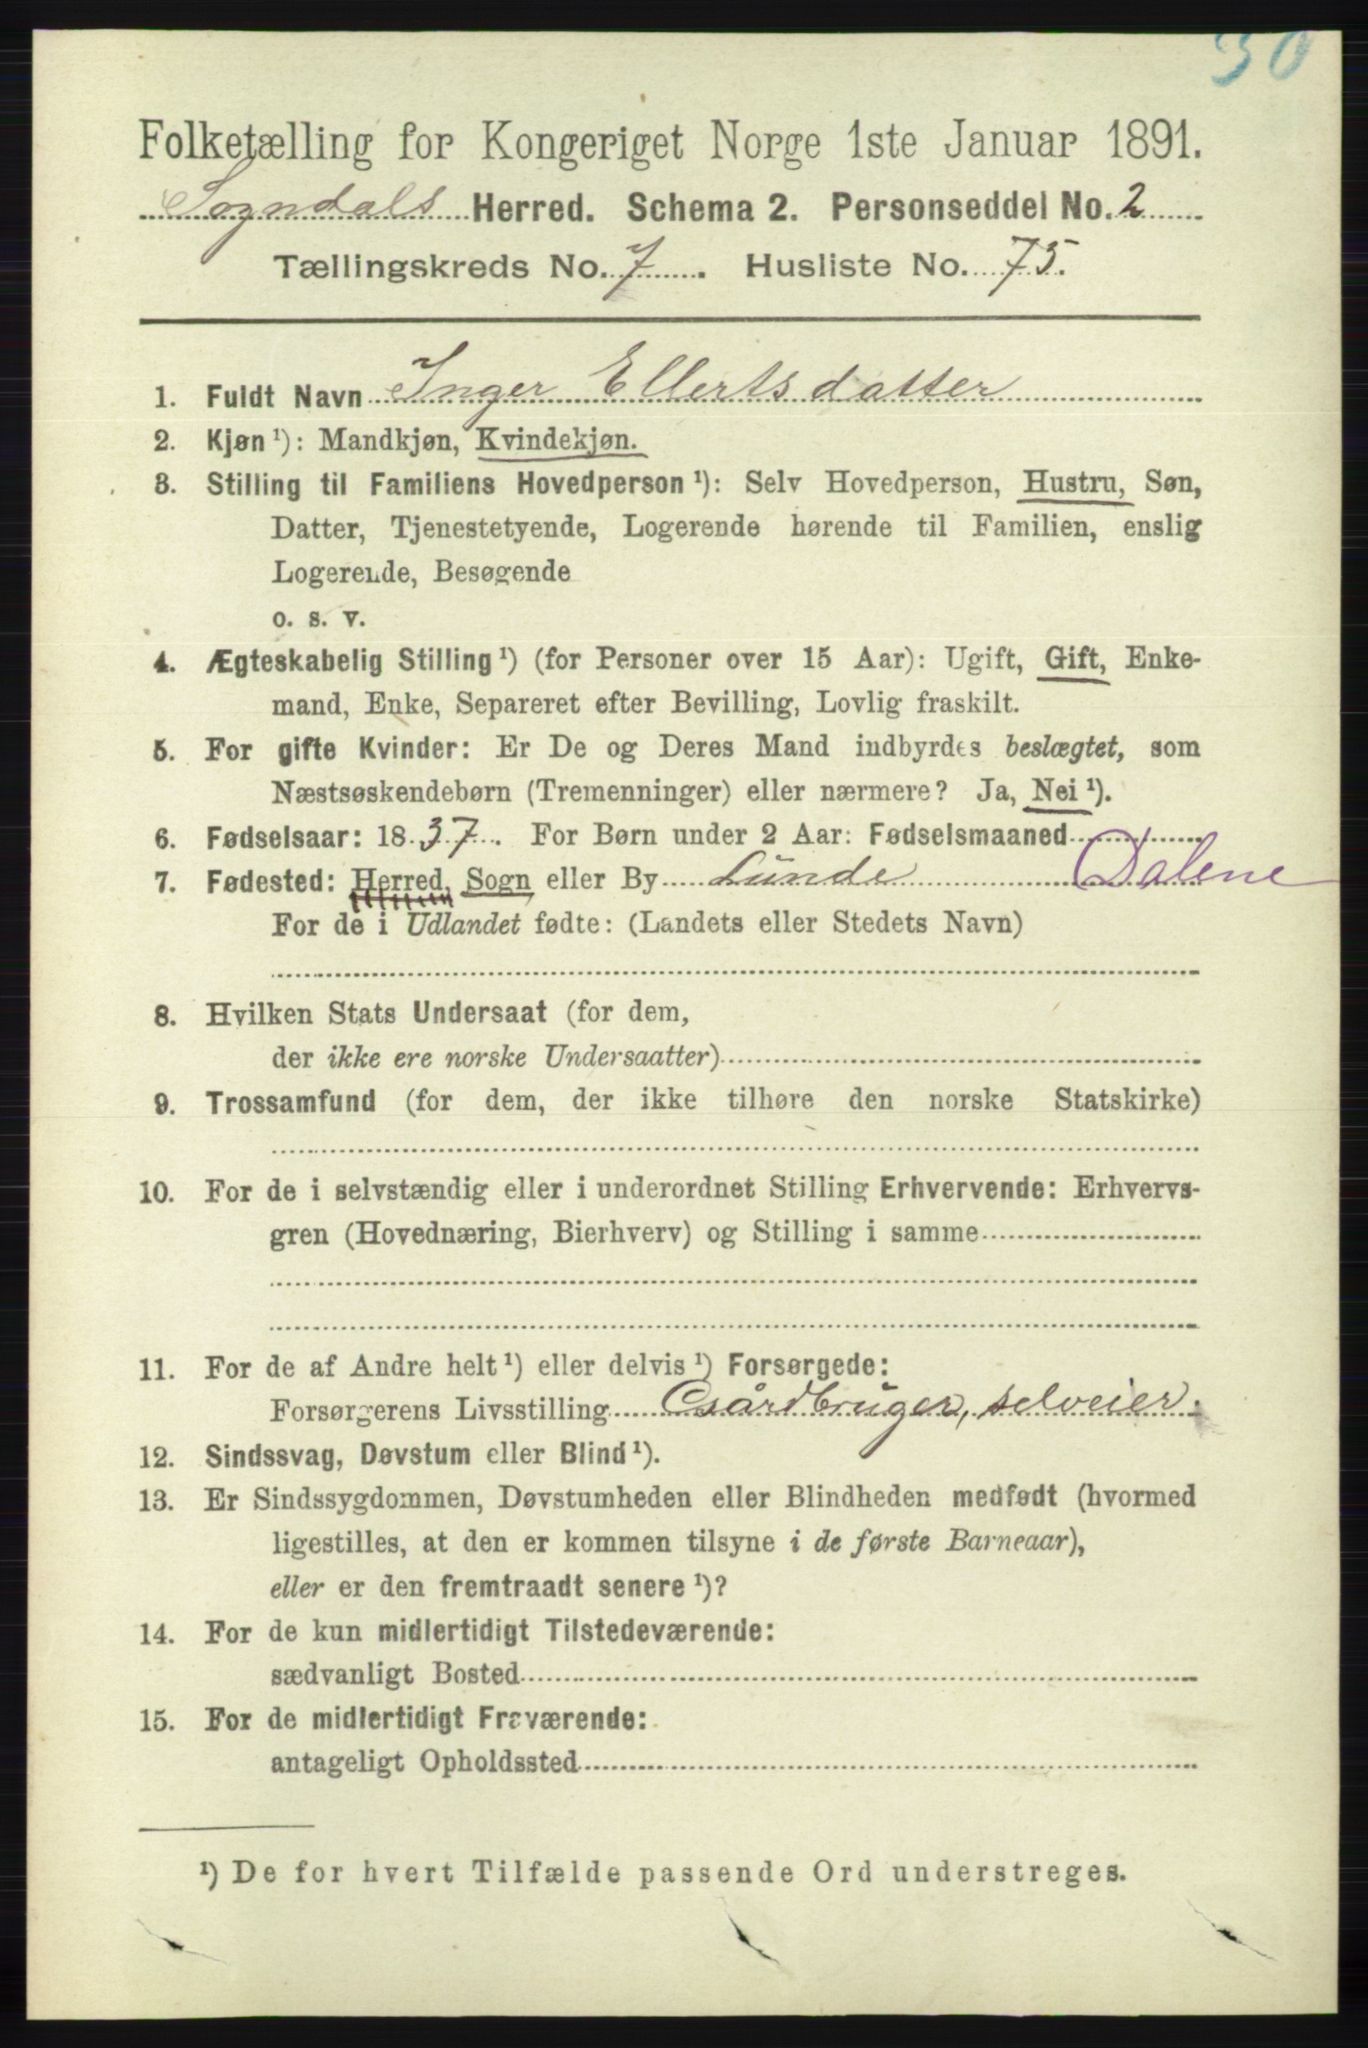 30
Folketælling for Kongeriget Norge 1ste Januar 1891.
Sogndals Herred. Schema 2. Personseddel No. 2
Tællingskreds No. 7. Husliste No. 75.
1. Fuldt Navn Inger Ellertsdatter
2. Kjøn ¹): Mandkjøn, Kvindekjøn.
3. Stilling til Familiens Hovedperson ¹): Selv Hovedperson, Hustru, Søn,
Datter, Tjenestetyende, Logerende hørende til Familien, enslig
Logerende, Besøgende
o. s. v.
4. Ægteskabelig Stilling ¹) (for Personer over 15 Aar): Ugift, Gift, Enke-
mand, Enke, Separeret efter Bevilling, Lovlig fraskilt.
5. For gifte Kvinder: Er De og Deres Mand indbyrdes beslægtet, som
Næstsøskendebørn (Tremenninger) eller nærmere? Ja, Nei ¹).
6. Fødselsaar: 1837. For Børn under 2 Aar: Fødselsmaaned
7. Fødested: Herred, Sogn eller By Lunde Dalene
For de i Udlandet fødte: (Landets eller Stedets Navn)
8. Hvilken Stats Undersaat (for dem,
der ikke ere norske Undersaatter)
9. Trossamfund (for dem, der ikke tilhøre den norske Statskirke)
10. For de i selvstændig eller i underordnet Stilling Erhvervende: Erhvervs-
gren (Hovednæring, Bierhverv) og Stilling i samme
11. For de af Andre helt ¹) eller delvis ¹) Forsørgede:
Forsørgerens Livsstilling Gårdbruger, selveier.
12. Sindssvag, Døvstum eller Blind ¹).
13. Er Sindssygdommen, Døvstumheden eller Blindheden medfødt (hvormed
ligestilles, at den er kommen tilsyne i de første Barneaar),
eller er den fremtraadt senere ¹)?
14. For de kun midlertidigt Tilstedeværende:
sædvanligt Bosted
15. For de midlertidigt Fraværende:
antageligt Opholdssted
¹) De for hvert Tilfælde passende Ord understreges.